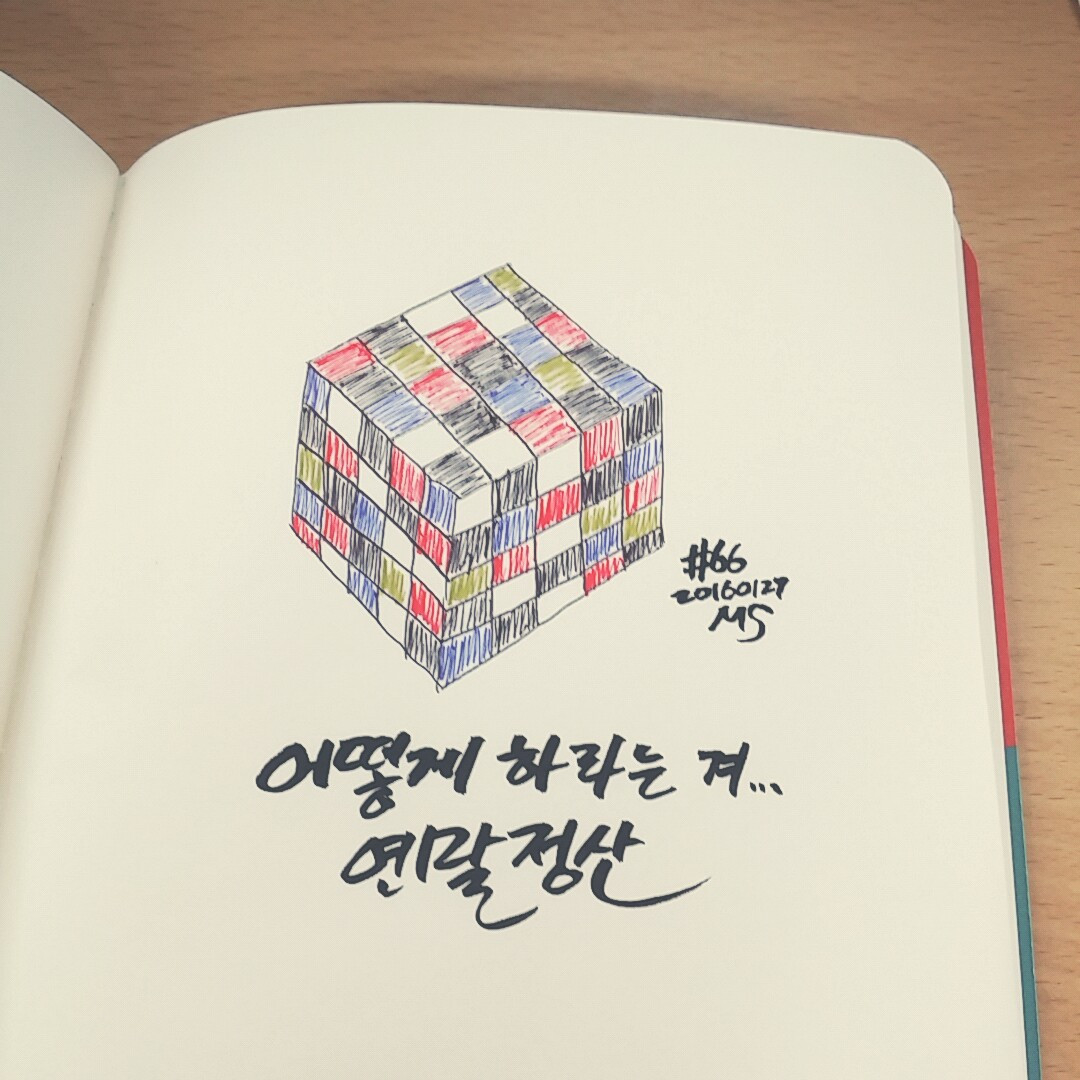 #66
20160127
MS
어떻게 하라는 겨...
연말정산